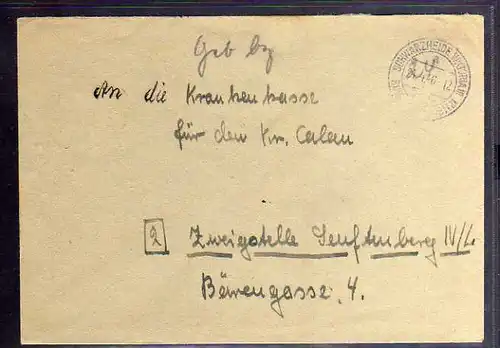 Geb bz
SCHWARZHEIDE
An die Krankenkasse
für den Kr. Calau
2 Zweigstelle Senftenberg N/L.
Bärengasse 4.